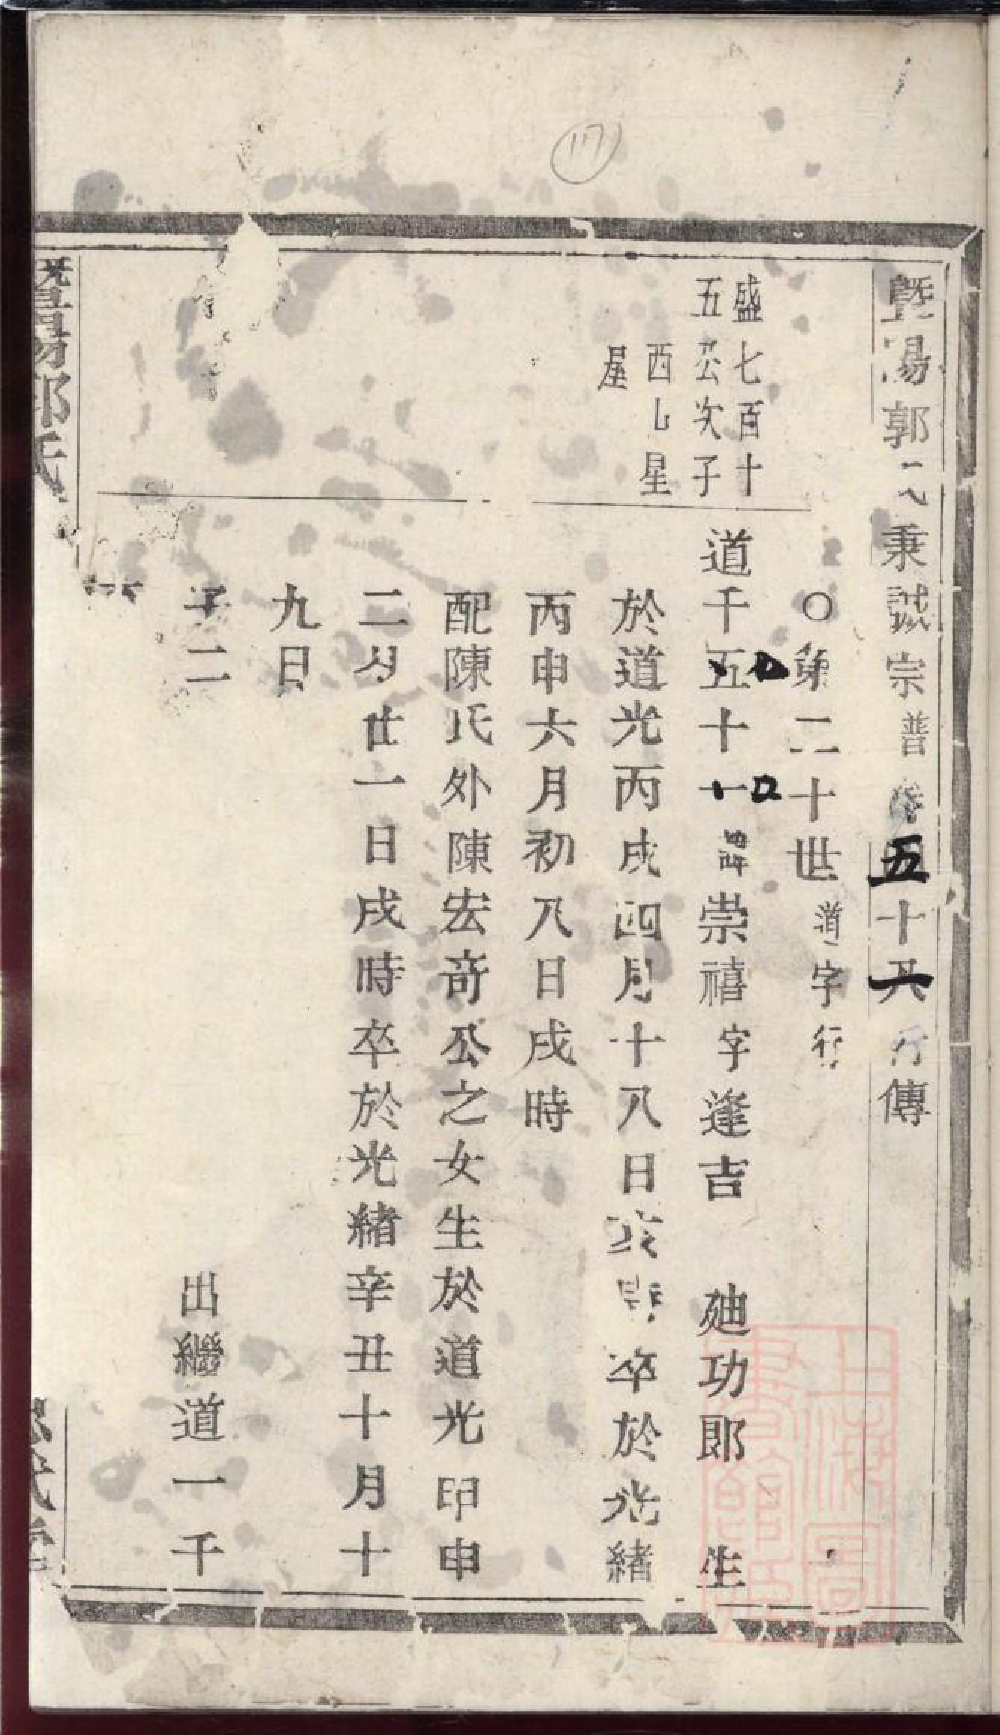 117
暨陽郭氏秉誠宗譜卷五十六行傳
〇第二十世道字行
盛七百十
五公次子
西山星
屋
道千五十一諱崇禧字逢吉 廸功郎 生
七口
於道光丙戌四月十八日亥時卒於光緒
丙申六月初八日戌時
配陳氏外陳宏奇公之女生於道光甲申
二月廿一日戌時卒於光緒辛丑十月十
九日
子二 出繼道一千
暨陽郭氏
上海圖書館藏